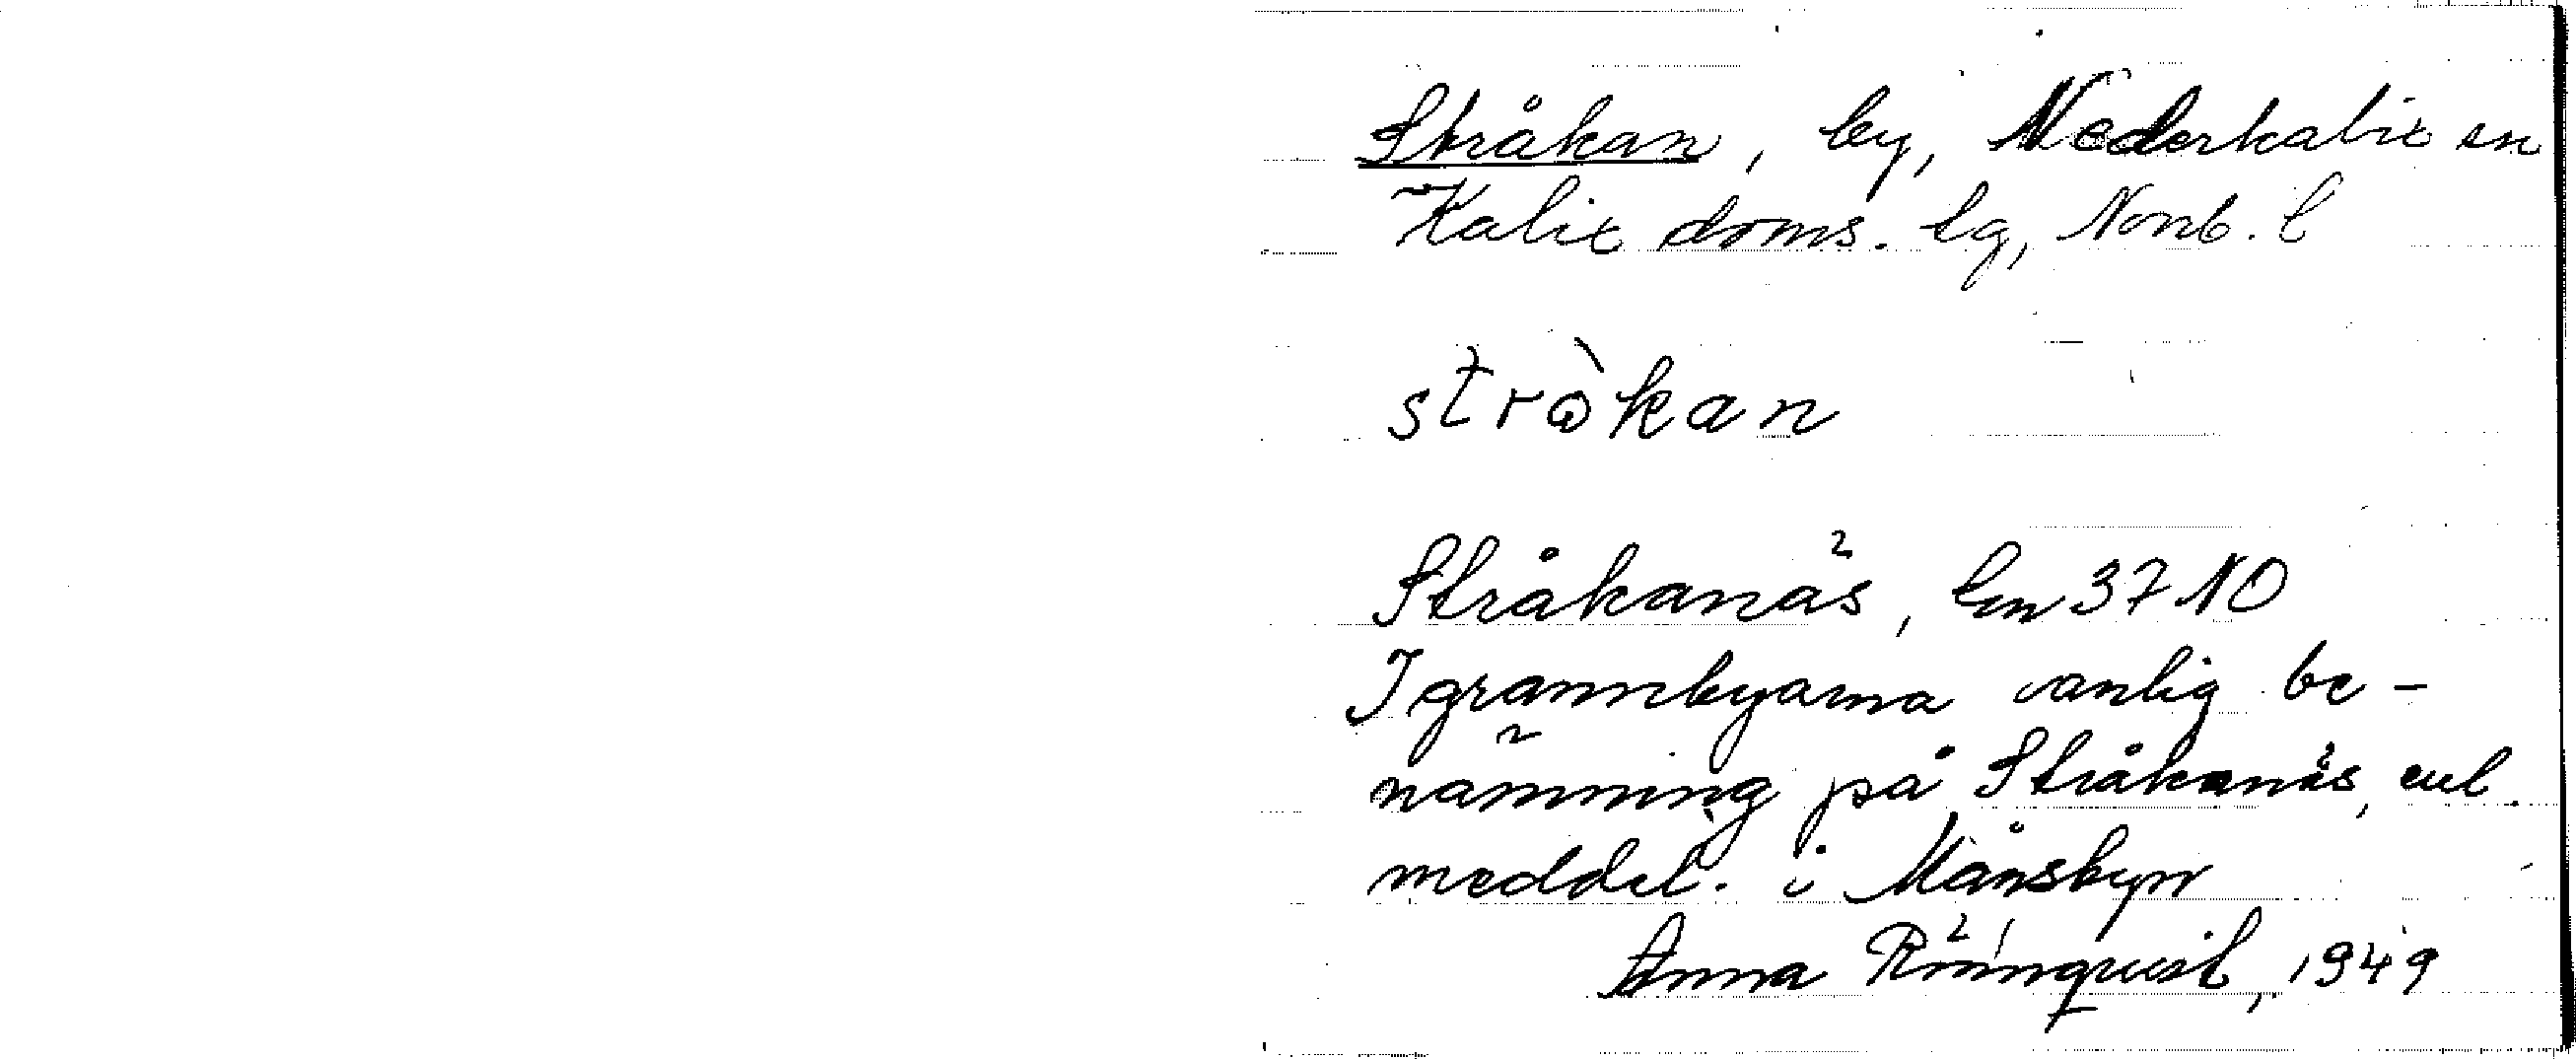 Stråkan, by, Nederkalix sn
Kalix doms. lg, Norrb. l
stròkan
Stråkanäs, bm 37 NO
I grannbyarna vanlig be-
nämning på Stråkanäs, enl.
meddel. i Månsbyn
Anna Rönnquist, 1949